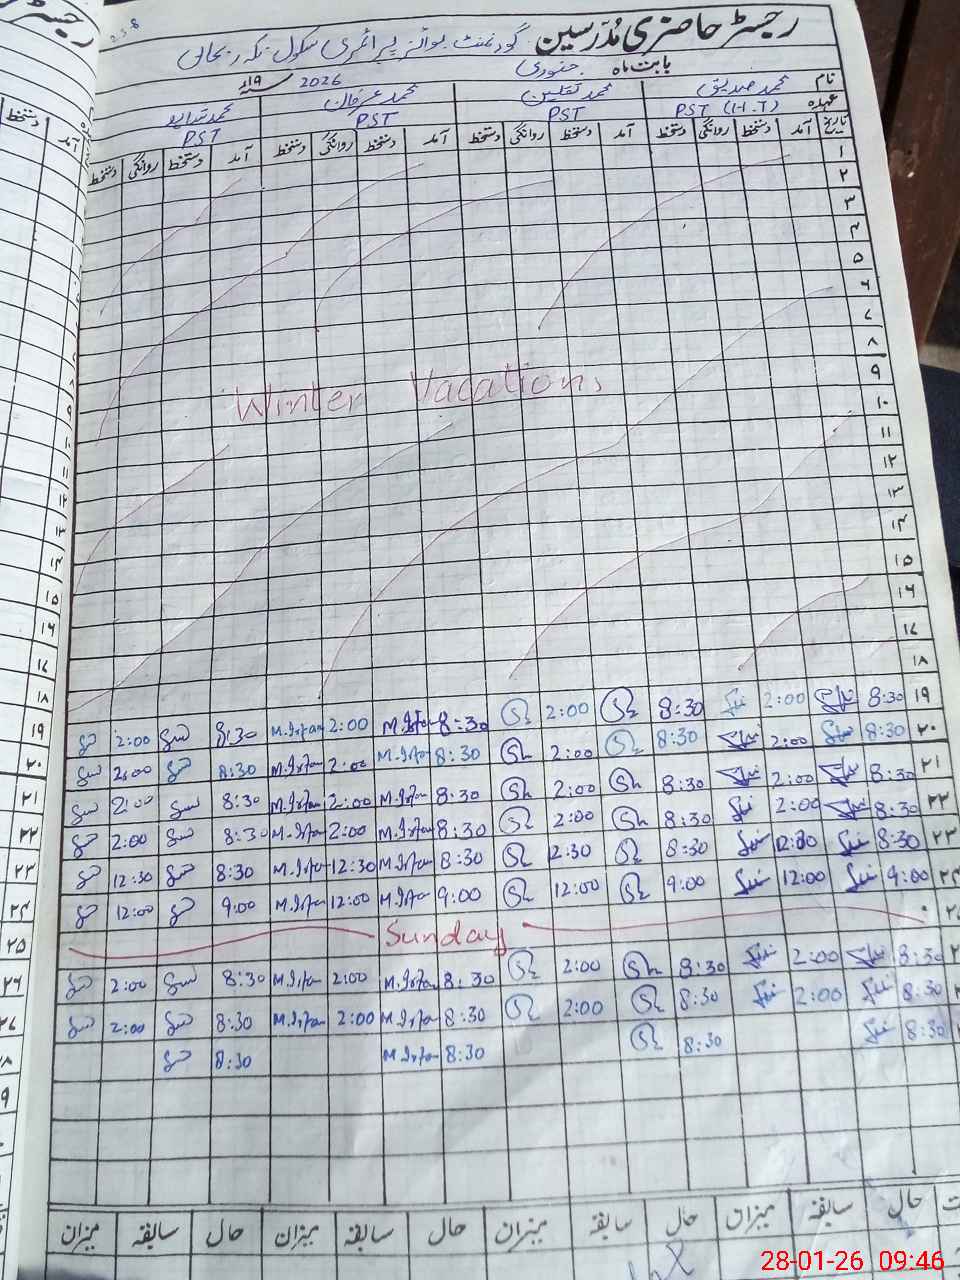 رجسٹر حاضری مُدرسین گورنمنٹ بوائز پرائمری سکول
بابت ماہ جنوری 2026 ۱۹ء
نام محمد صدیق محمد ثقلین محمد عرفان
عہدہ PST (H.T) PST PST PST
تاریخ آمد دستخط روانگی دستخط آمد دستخط روانگی دستخط آمد دستخط روانگی دستخط آمد دستخط روانگی دستخط
۱
۲
۳
۴
۵
۶
۷
۸
۹
Winter Vacations
۱۰
۱۱
۱۲
۱۳
۱۴
۱۵
۱۶
۱۷
۱۸
۱۹ 8:30 2:00 8:30 2:00 8:30 M.Irfan 2:00 M.Irfan 8:30 2:00
۲۰ 8:30 2:00 8:30 2:00 8:30 M.Irfan 2:00 M.Irfan 8:30 2:00
۲۱ 8:30 2:00 8:30 2:00 8:30 M.Irfan 2:00 M.Irfan 8:30 2:00
۲۲ 8:30 2:00 8:30 2:00 8:30 M.Irfan 2:00 M.Irfan 8:30 2:00
۲۳ 8:30 12:30 8:30 12:30 8:30 M.Irfan 12:30 M.Irfan 8:30 12:30
۲۴ 9:00 12:00 9:00 12:00 9:00 M.Irfan 12:00 M.Irfan 9:00 12:00
Sunday
8:30 2:00 8:30 2:00 8:30 M.Irfan 2:00 M.Irfan 8:30 2:00
8:30 2:00 8:30 2:00 8:30 M.Irfan 2:00 M.Irfan 8:30 2:00
8:30 8:30 8:30 M.Irfan 8:30
حال سابقہ میزان حال سابقہ میزان حال سابقہ میزان حال سابقہ میزان
28-01-26 09:46